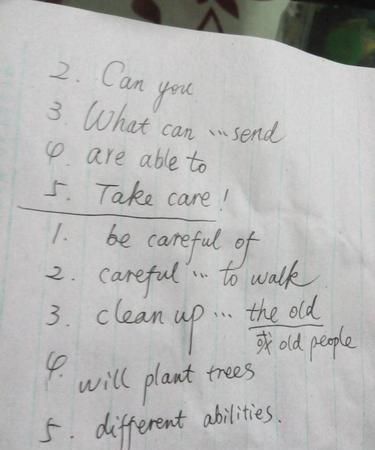 2. Can you
3. What can ... send
4. are able to
5. Take care!
1. be careful of
2. careful ... to walk
3. clean up ... the old
或 old people
4. will plant trees
5. different abilities.